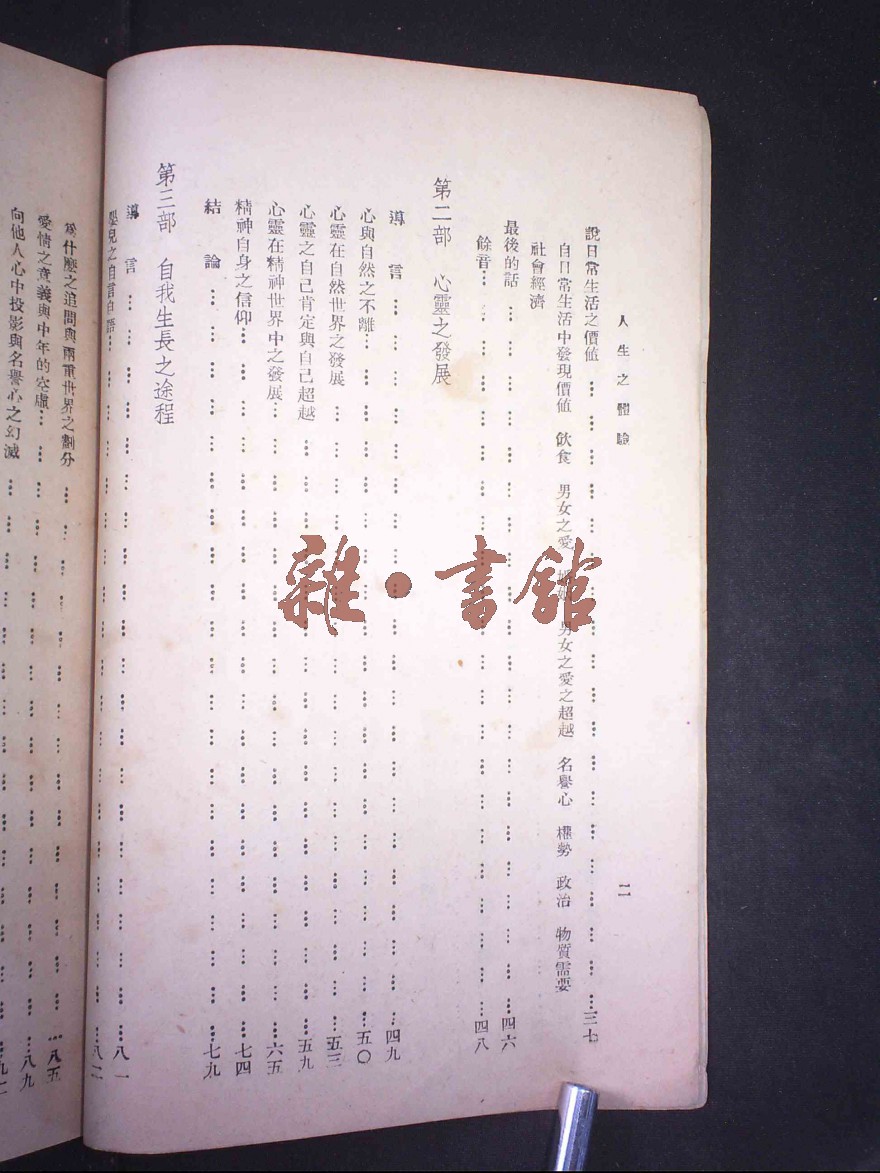 人生之體驗
二
說日常生活之價值……三七
自日常生活中發現價値 飲食 男女之愛 婚姻 男女之愛之超越 名譽心 權勢 政治 物質需要
社會經濟
最後的話……四六
餘音……四八
第二部 心靈之發展
導言……四九
心與自然之不離……五〇
心靈在自然世界之發展……五三
心靈之自己肯定與自己超越……五九
心靈在精神世界中之發展……六五
精神自身之信仰……七四
結論……七九
第三部 自我生長之途程
導言……八一
嬰兒之自言自語……八二
爲什麼之追問與兩重世界之劃分……八五
愛情之意義與中年的空虛……八九
向他人心中投影與名譽心之幻滅
雜·書館